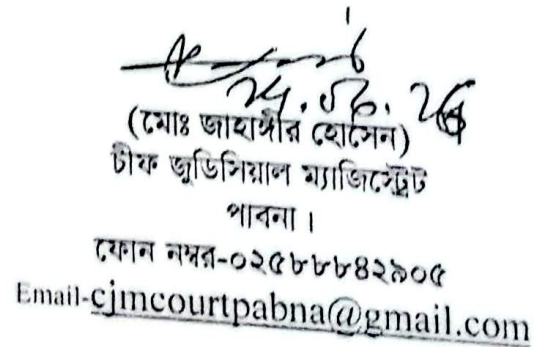 (মোঃ জাহাঙ্গীর হোসেন)
চীফ জুডিসিয়াল ম্যাজিস্ট্রেট
পাবনা।
ফোন নম্বর-০২৫৮৮৮৪২৯০৫
Email-cjmcourtpabna@gmail.com